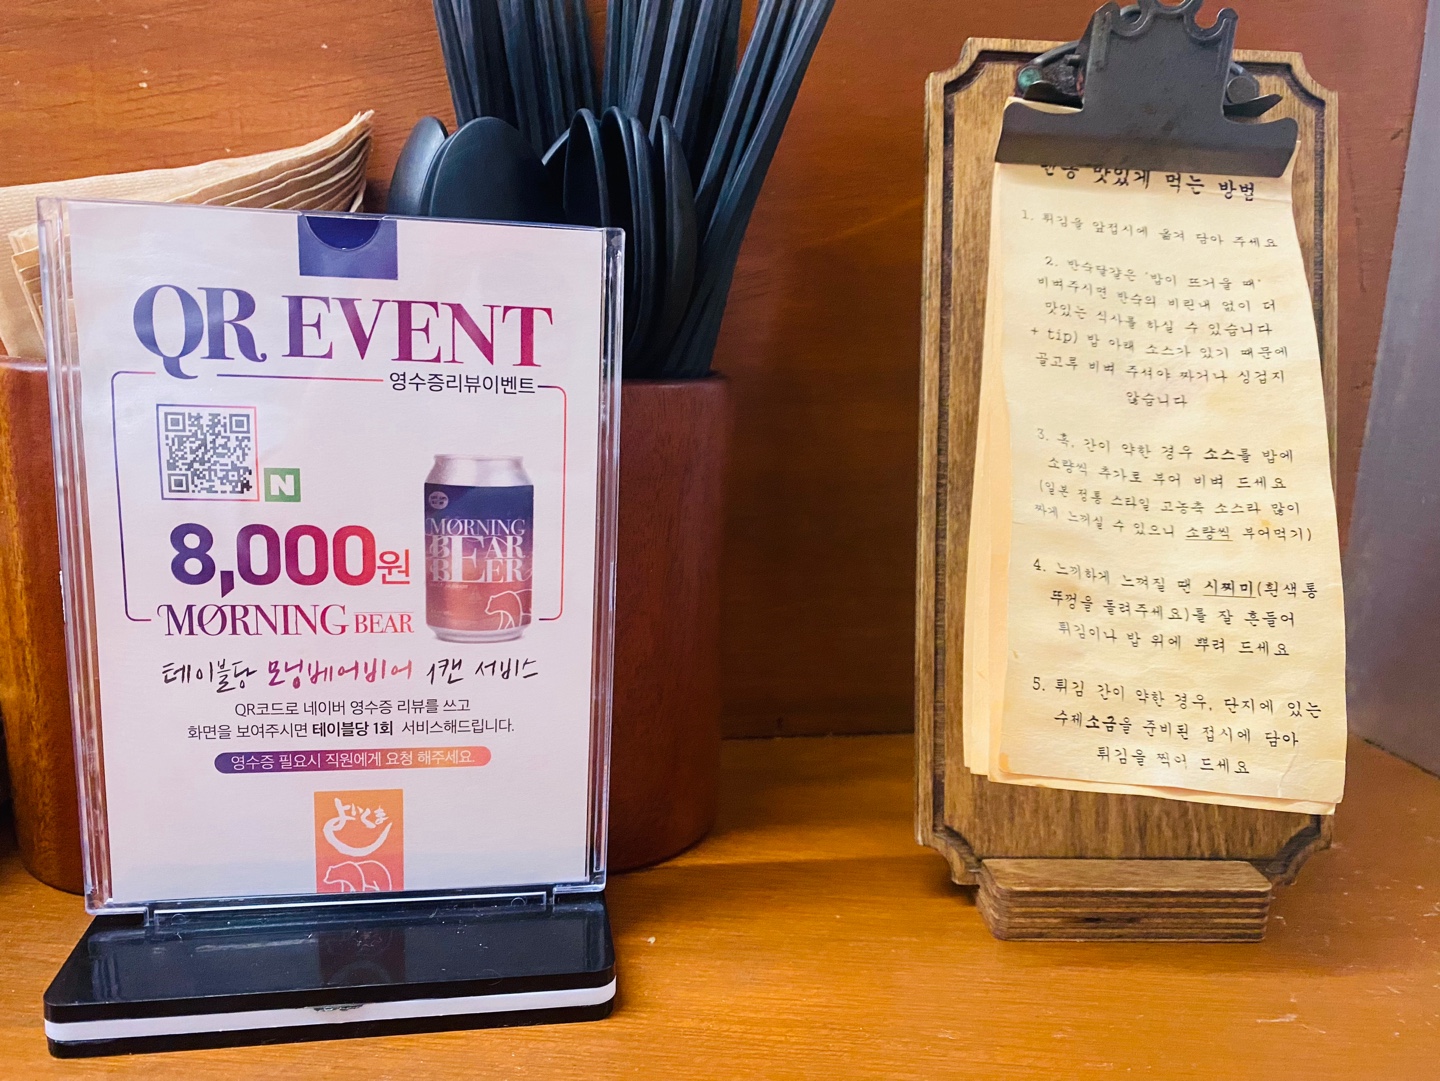 QR EVENT
영수증리뷰이벤트
N
8,000원
MØRNING BEAR
MØRNING
BEAR
BEER
테이블당 모닝베어비어 1캔 서비스
QR코드로 네이버 영수증 리뷰를 쓰고
화면을 보여주시면 테이블당 1회 서비스해드립니다.
영수증 필요시 직원에게 요청 해주세요.
よいくま
맛있게 먹는 방법
1. 튀김을 앞접시에 옮겨 담아 주세요
2. 반숙달걀은 '밥이 뜨거울 때'
비벼주시면 반숙의 비린내 없이 더
맛있는 식사를 하실 수 있습니다
+ tip) 밥 아래 소스가 있기 때문에
골고루 비벼 주셔야 짜거나 싱겁지
않습니다
3. 혹, 간이 약한 경우 소스를 밥에
소량씩 추가로 부어 비벼 드세요
(일본 정통 스타일 고농축 소스라 많이
짜게 느끼실 수 있으니 소량씩 부어먹기)
4. 느끼하게 느껴질 땐 시찌미(흰색통
뚜껑을 돌려주세요)를 잘 흔들어
튀김이나 밥 위에 뿌려 드세요
5. 튀김 간이 약한 경우, 단지에 있는
수제소금을 준비된 접시에 담아
튀김을 찍어 드세요